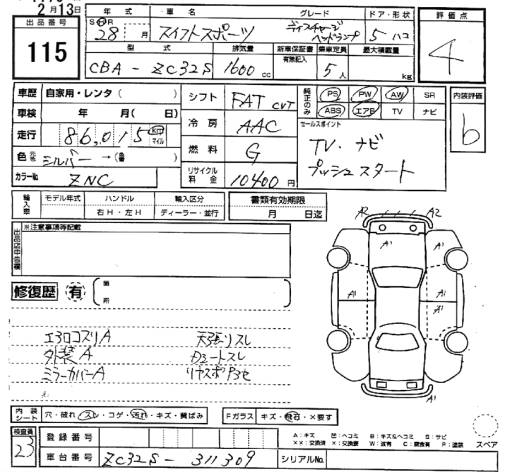 2月13日
出品番号
115
年式 車名 グレード ドア・形状 評価点
S H R
28 月 スイフトスポーツ ディスチャージヘッドランプ 5 ハコ
4
型式 排気量 新車保証書 乗車定員 最大積載量
有無記入
CBA-ZC32S 1600 cc 5人 kg
車歴 自家用・レンタ( )
車検 年 月( 日)
走行 86,015 km マイル
色 元色 シルバー → (番 )
カラーNo. ZNC
シフト FAT CVT
冷房 AAC
燃料 G
リサイクル料金 10400円
純正のみ PS PW AW SR
ABS エアB TV ナビ
セールスポイント
TV・ナビ
プッシュスタート
内装評価
b
輸入車 モデル年式 ハンドル 輸入区分
右H・左H ディーラー・並行
書類有効期限
月 日迄
※注意事項等記載
修復歴 有 箇所
エアロコスリA
外装A
ミラーカバーA
天張リスレ
A2 A2
A1 A1
A1 A1
A1
内装シート 穴・破れ・スレ・コゲ・汚れ・キズ・黄ばみ
Fガラス キズ・飛石・×要す
検査員
23
登録番号
車台番号 ZC32S-311309
シリアルNo.
A:キズ U:ヘコミ B:キズ&ヘコミ S:サビ
××:交換済 ×:交換要 W:波有 C:腐食 P:塗装
スペア